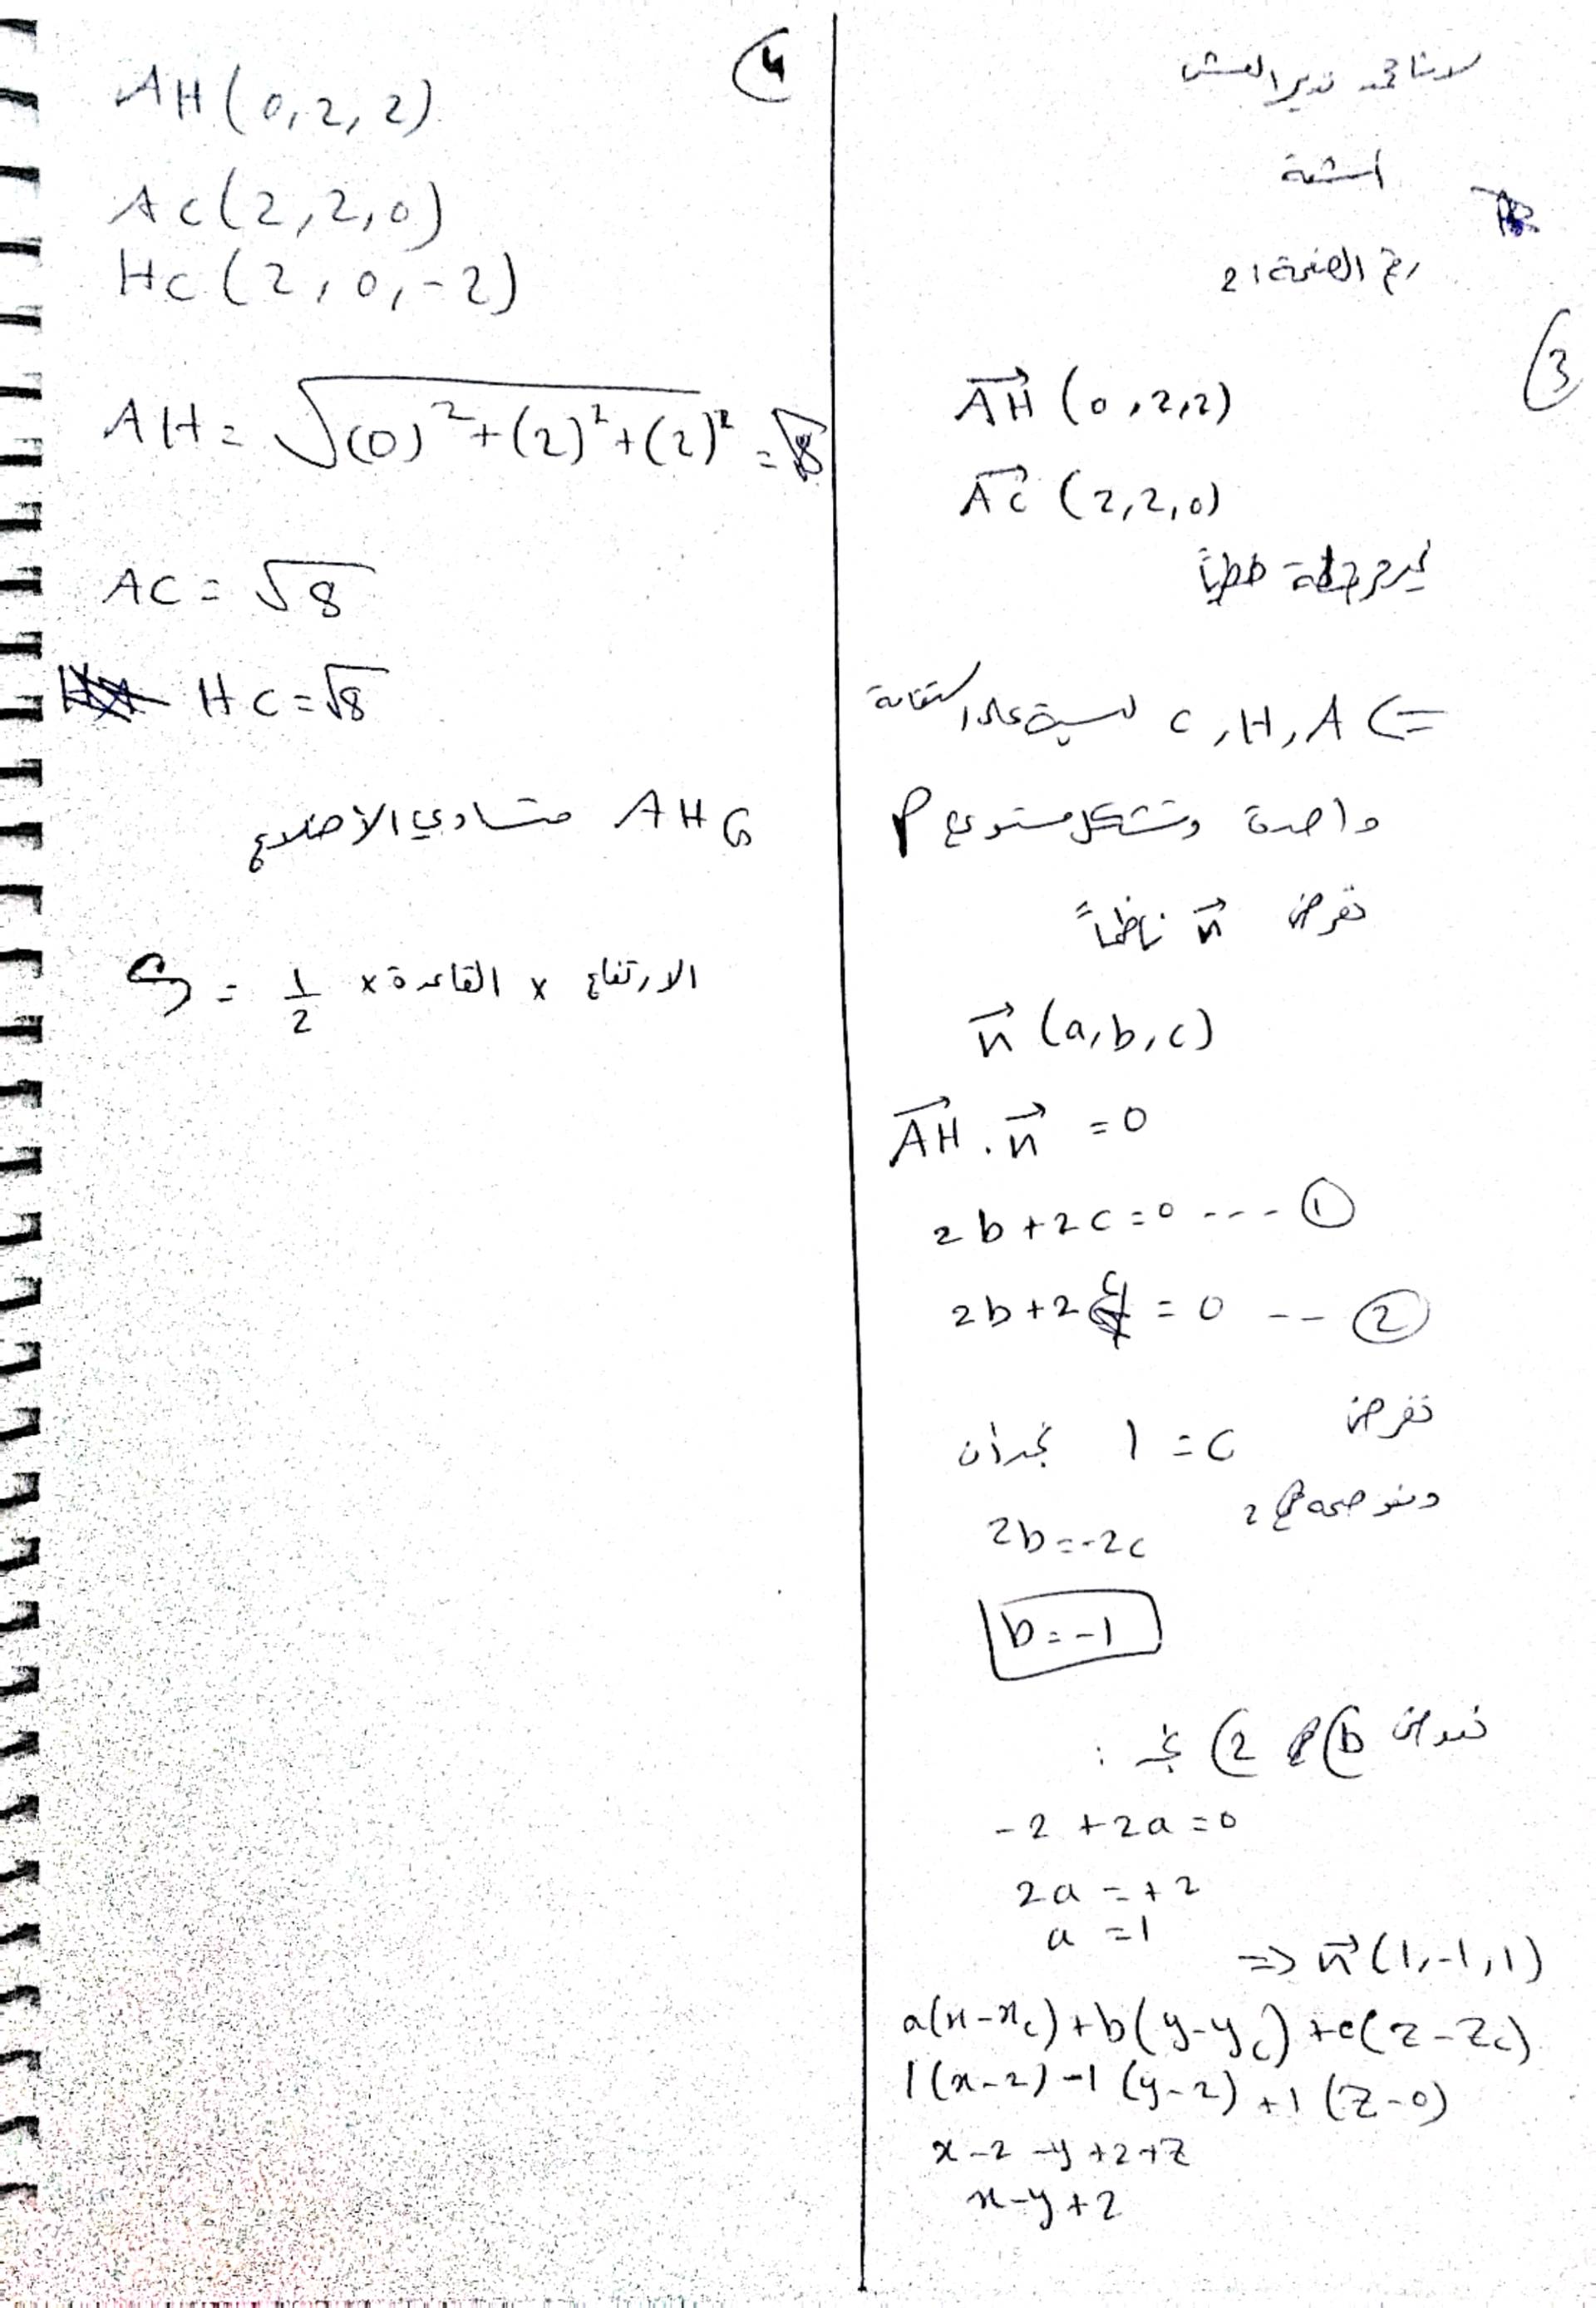 أشعة
رقم الصفحة 21
3)
AH (0,2,2)
AC (2,2,0)
غير مرتبطة خطياً
<= A, H, C ليست على استقامة
واحدة وتشكل مستوي P
نفرض n ناظماً
n (a,b,c)
AH . n = 0
2b+2c=0 --- ①
2b+2a=0 -- ②
نفرض c = 1 نجد أن
2b=-2c
b=-1
نعوض b في 2) نجد :
-2 +2a=0
2a = +2
a =1
=> n (1,-1,1)
a(x-xc)+b(y-yc)+c(z-zc)
1(x-2)-1(y-2)+1(z-0)
x-2-y+2+z
x-y+z
4)
AH(0,2,2)
AC(2,2,0)
HC(2,0,-2)
AH= √(0)²+(2)²+(2)² =√8
AC= √8
HC=√8
AHC متساوي الأضلاع
S = 1/2 × القاعدة × الارتفاع